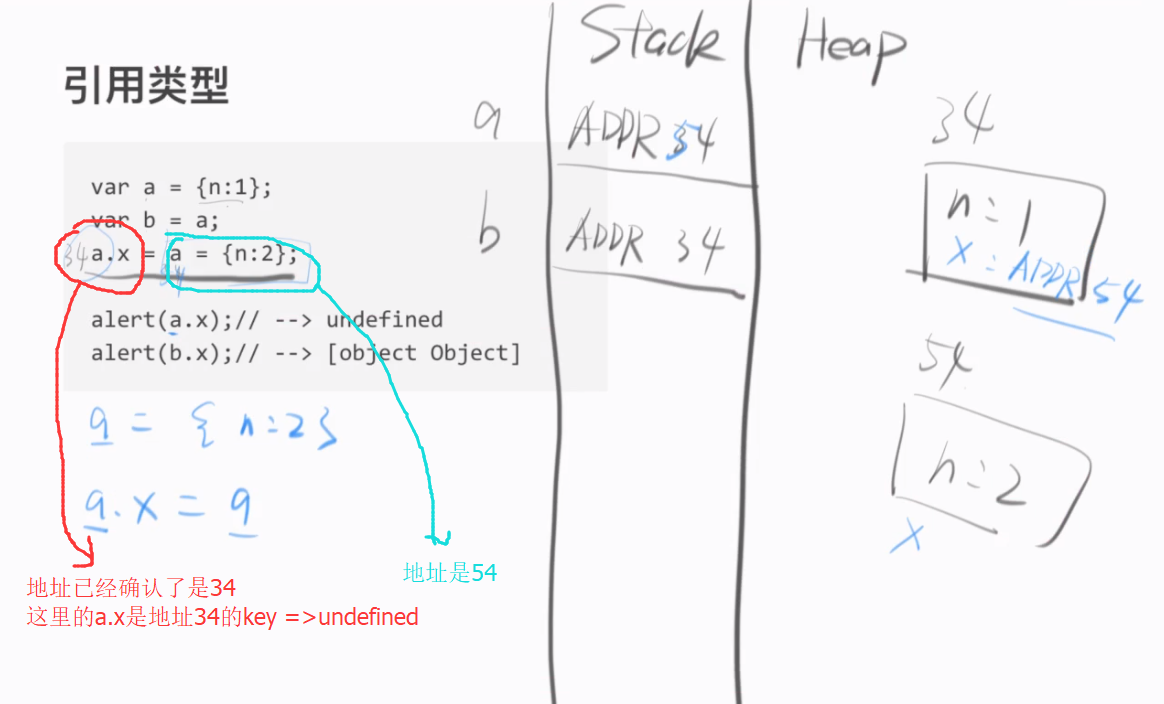 引用类型
var a = {n:1};
var b = a;
a.x = a = {n:2};
34
34
alert(a.x);// --> undefined
alert(b.x);// --> [object Object]
a = { n:2}
a.x = a
地址已经确认了是34
这里的a.x是地址34的key =>undefined
地址是54
Stack
Heap
a
ADDR 54
b
ADDR 34
34
n:1
x:ADDR 54
54
n:2
x